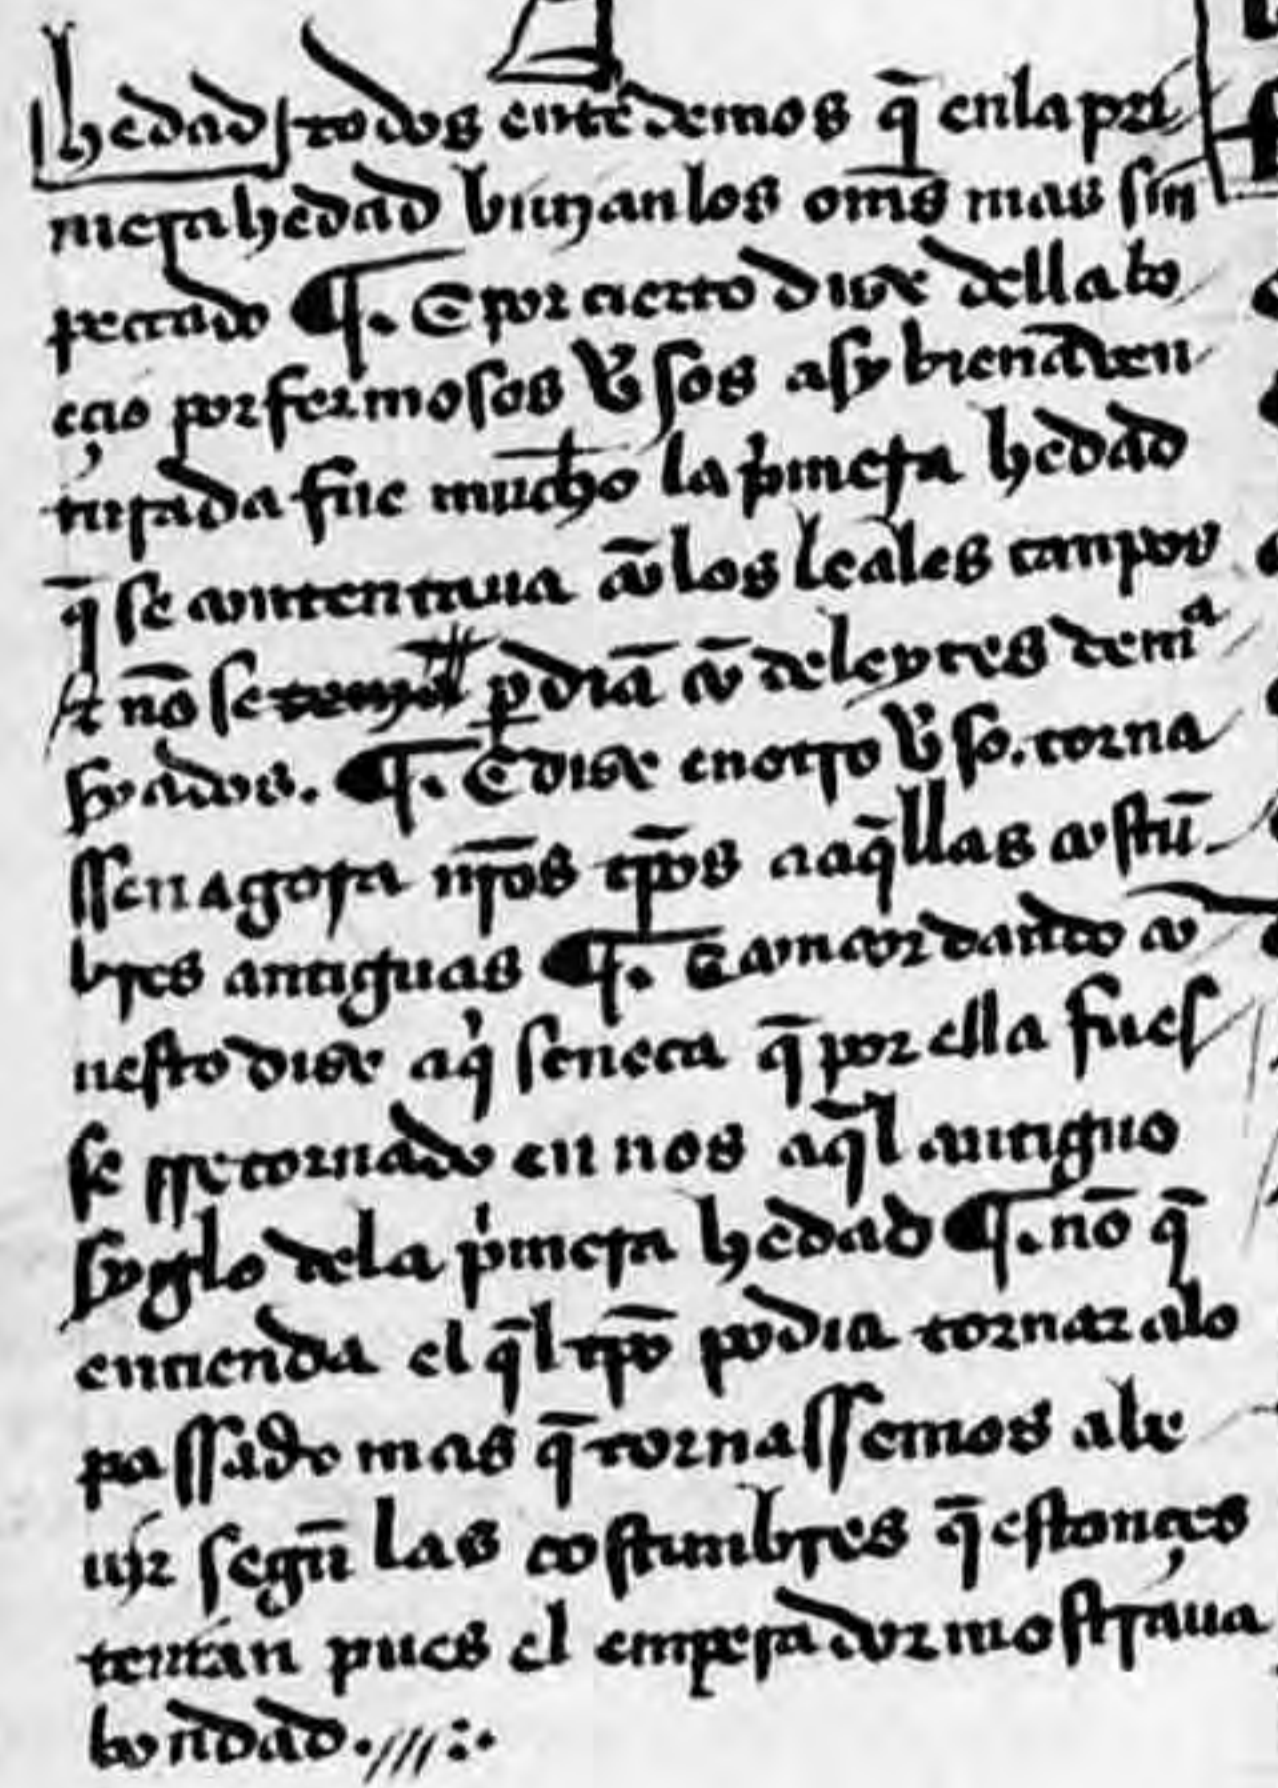 hedad todos entẽdemos q̃ enla pri
mera hedad biujan los om̃s mas sin
pecado ¶. E por cierto dize della bo
eçio por fermosos v̉sos asy bienãven
turada fue mucho la p̉mera hedad
q̃ se contentaua cõ los leales canpos
⁊ nõ se perdiã cõ deleytes demᵃ
syados. ¶. E dize en otro v̉so. torna
ssen agora nr̃os tp̃os a aq̃llas costũ
bres antiguas ¶. E acordando co
nesto dize aq̉ seneca q̃ por ella fues
se rretornado en nos aq̃l antiguo
syglo de la p̉mera hedad ¶. nõ q̃
entienda el q̃l tp̃o podia tornar alo
passado mas q̃ tornassemos a be
ujr segũ las costunbres q̃ estonçes
tenian pues el emperador mostraua
bondad.///:·